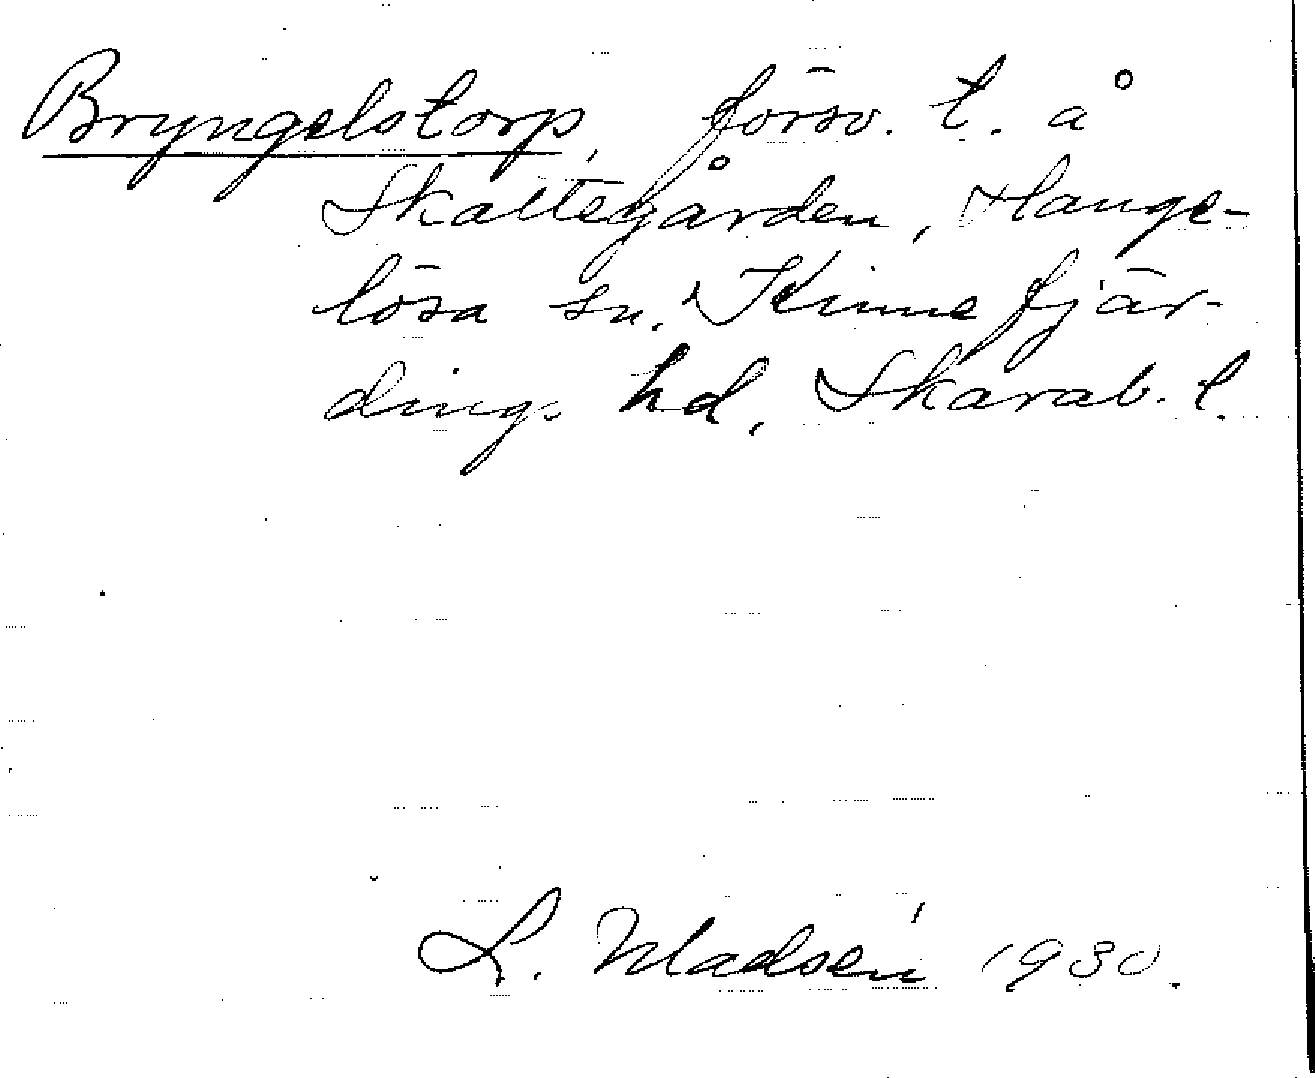 Bryngelstorp, försv. t. å
Skattegården, Hange-
lösa sn. Kinnefjär-
dings hd, Skarab. l.
L. Madsén 1930.